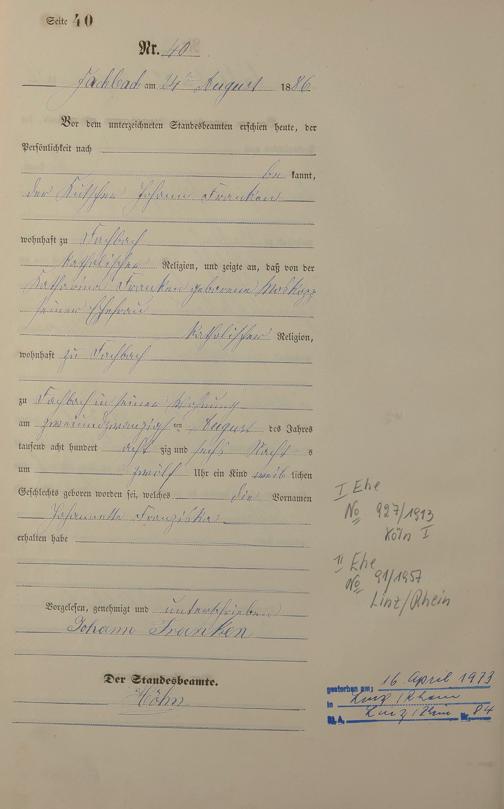 Seite 40
Nr. 40
Fachbach am 24ten August 1886
Vor dem unterzeichneten Standesbeamten erschien heute, der
Persönlichkeit nach
bekannt,
der Kutscher Johann Franken
wohnhaft zu Fachbach
katholischer Religion, und zeigte an, daß von der
Katharina Franken geborene Moskopp
seiner Ehefrau
katholischer Religion,
wohnhaft zu Fachbach
zu Fachbach in seiner Wohnung
am zweiundzwanzigsten August des Jahres
tausend acht hundert achtzig und sechs Nachts
um zwölf Uhr ein Kind weiblichen
Geschlechts geboren worden sei, welches die Vornamen
Johannette Franziska
erhalten habe
Vorgelesen, genehmigt und unterschrieben
Johann Franken
Der Standesbeamte.
Höhn
I Ehe
No 927/1913
Köln I
II Ehe
No 91/1957
Linz/Rhein
gestorben am: 16 April 1973
in Linz/Rhein
St. A. Linz/Rhein Nr. 84